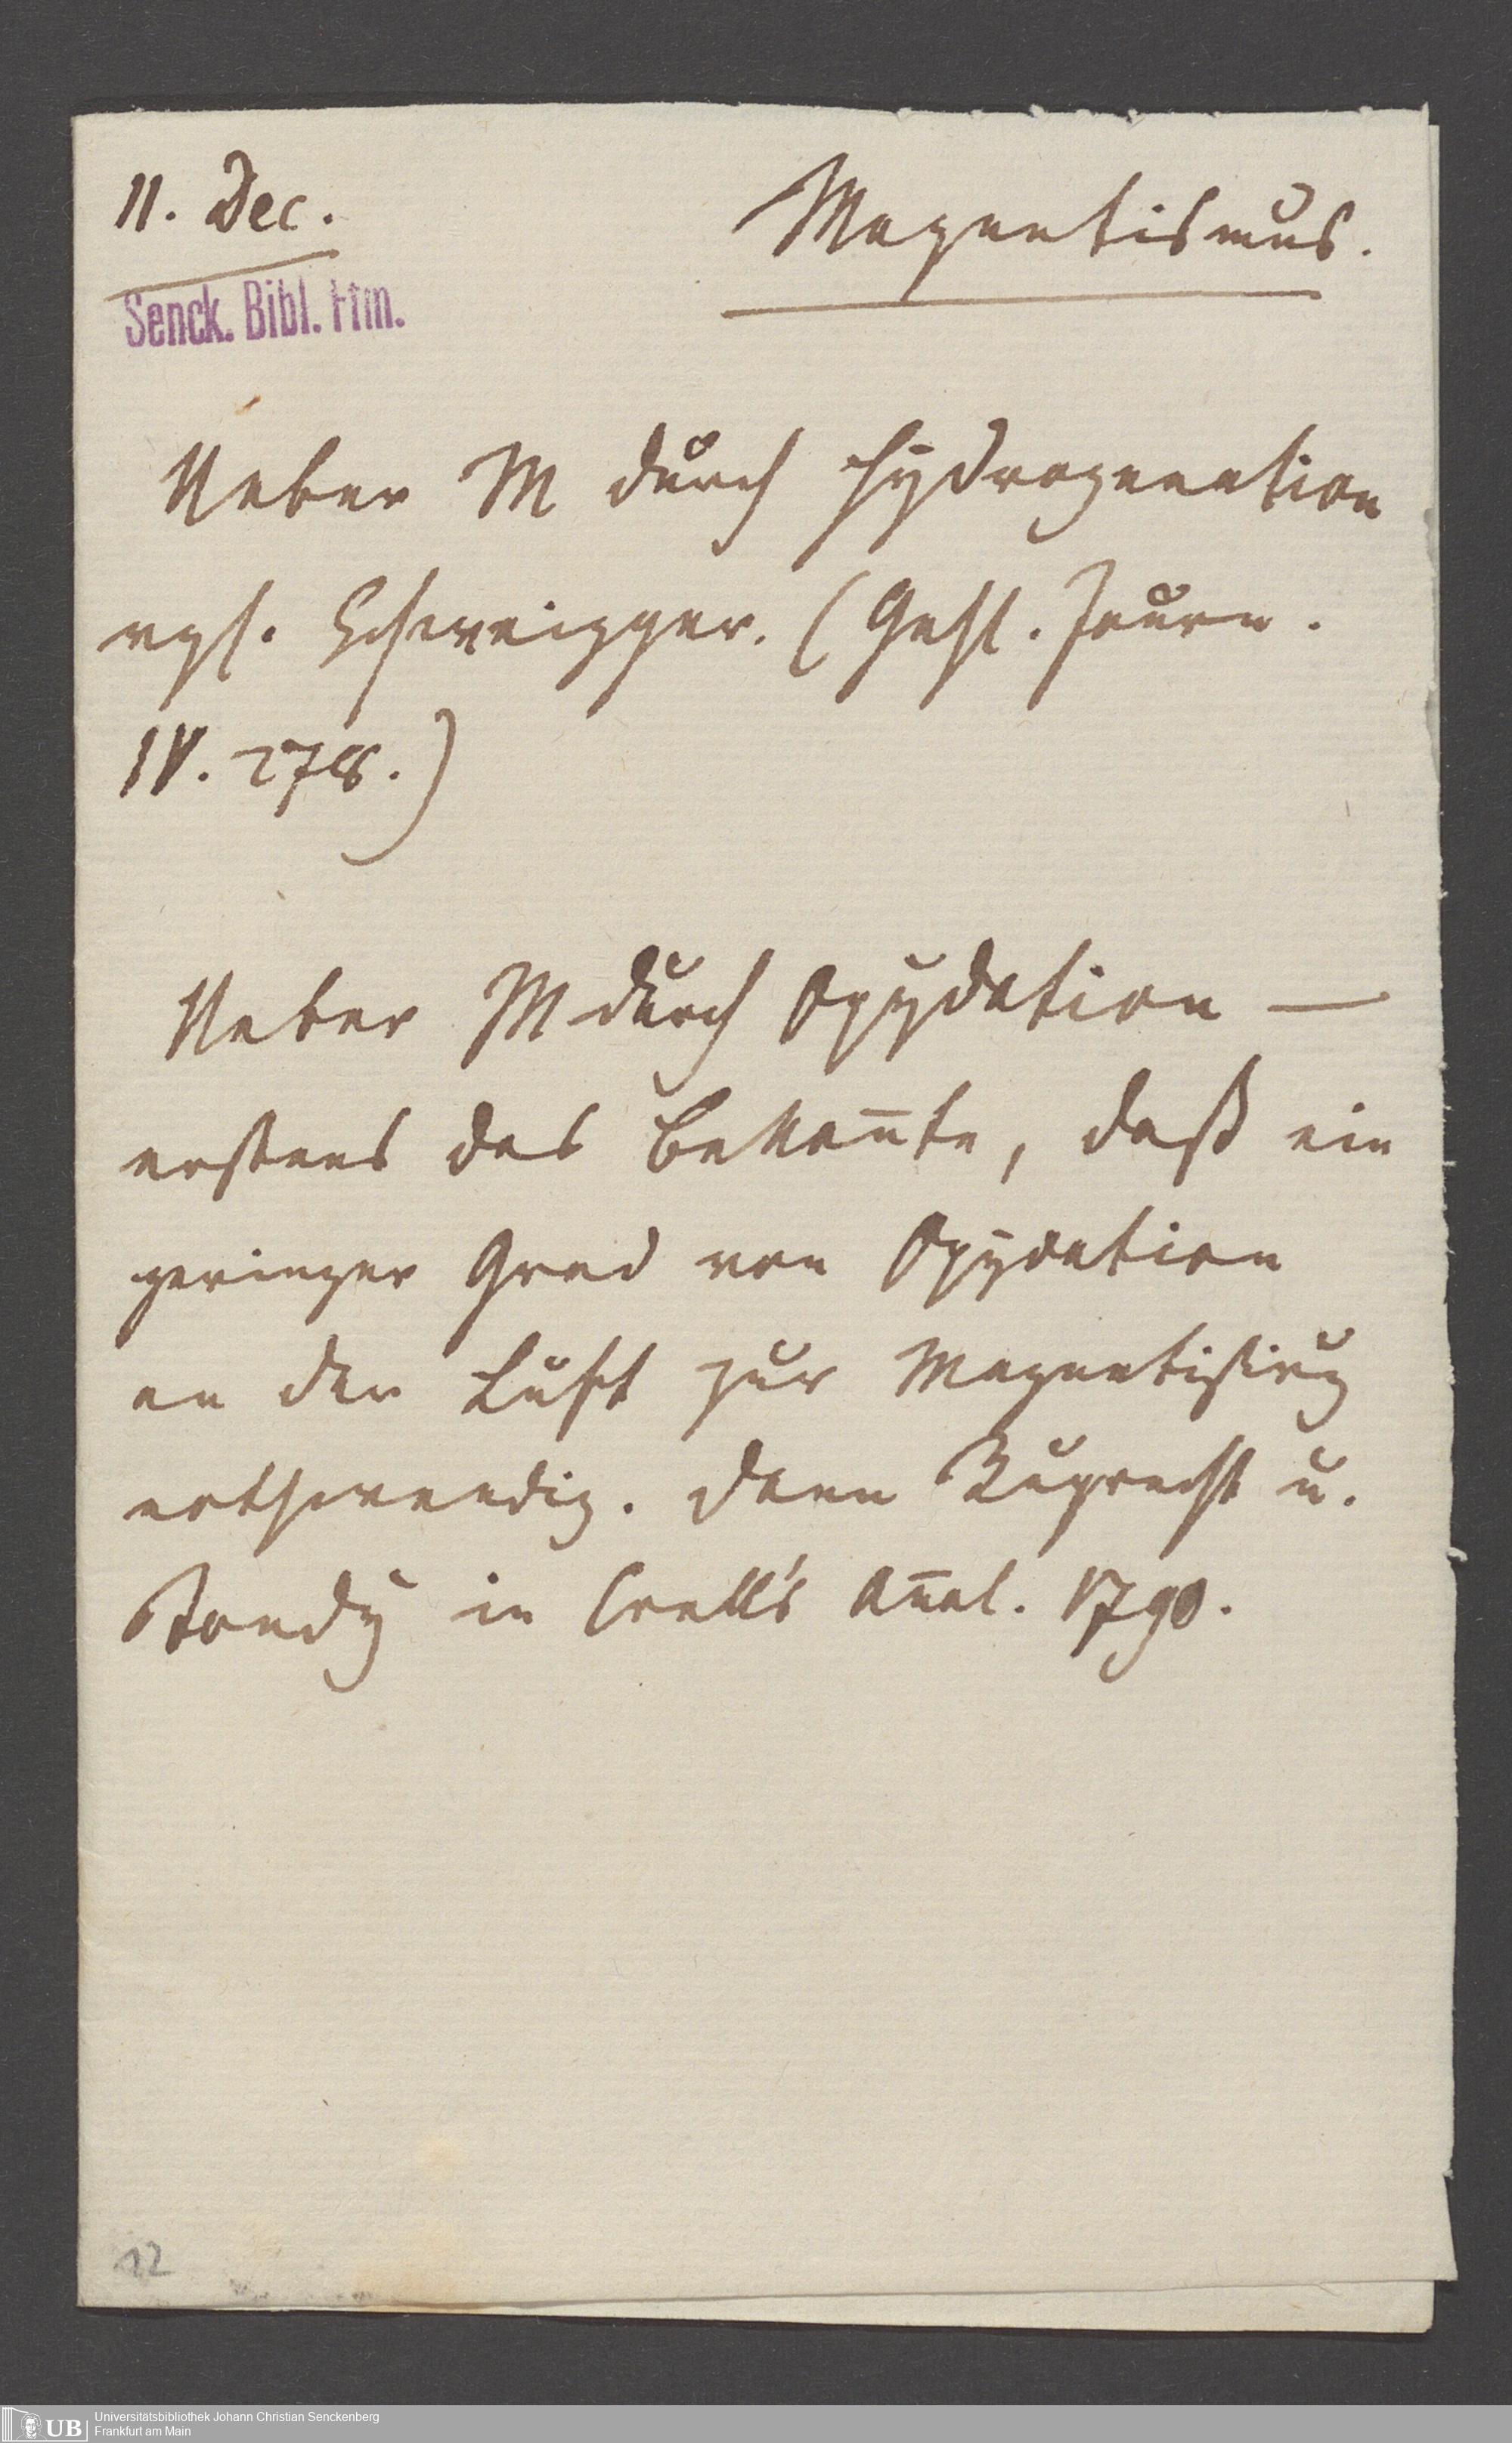 11. Dec.
Magnetismus.
Senck. Bibl. Ffm.
Ueber M durch Hydrogenation
vgl. Schweigger. (Gehl. Journ.
IV. 278.)
Ueber M durch Oxydation —
erstens das Bekan̄te, daß ein
geringer Grad von Oxydation
an der Luft zur Magnetisirug
nothwendig. Dann Ruprecht u.
Tondy in Crell's An̄al. 1790.
12
UB
Universitätsbibliothek Johann Christian Senckenberg
Frankfurt am Main